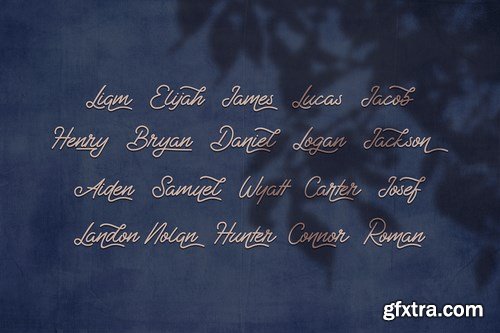 Liam Elijah James Lucas Jacob
Henry Bryan Daniel Logan Jackson
Aiden Samuel Wyatt Carter Josef
Landon Nolan Hunter Connor Roman
gfxtra.com